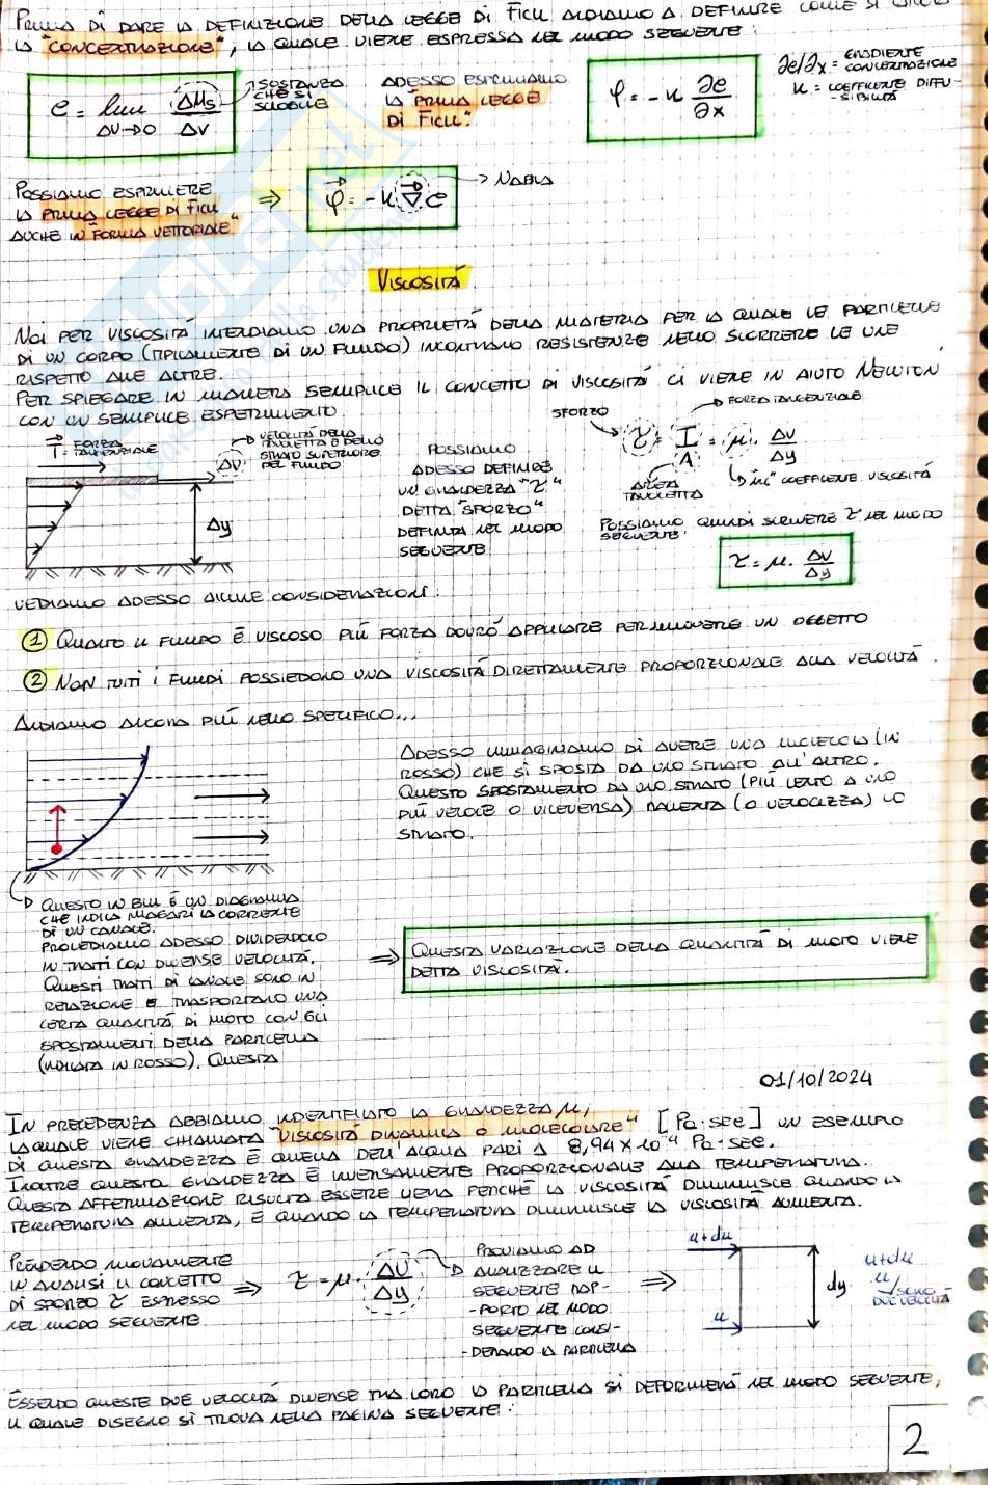 PRIMA DI DARE LA DEFINIZIONE DELLA LEGGE DI FICK ANDIAMO A DEFINIRE COME SI
LA "CONCENTRAZIONE", LA QUALE VIENE ESPRESSA NEL MODO SEGUENTE:
C = lim ΔMs/ΔV
ΔV→0
SOSTANZA
CHE SI
SCIOGLIE
ADESSO ESPRIMIAMO
LA "PRIMA LEGGE
DI FICK".
φ = -K ∂C/∂x
∂C/∂x = GRADIENTE
CONCENTRAZIONE
K = COEFFICIENTE DIFFU-
-SIBILITÀ
POSSIAMO ESPRIMERE
LA PRIMA LEGGE DI FICK
ANCHE IN "FORMA VETTORIALE"
⇒ φ = -K ∇ C
→ NABLA
VISCOSITÁ
NOI PER VISCOSITÁ INTENDIAMO UNA PROPRIETÁ DELLA MATERIA PER LA QUALE LE PARTICELLE
DI UN CORPO (TIPICAMENTE DI UN FLUIDO) INCONTRANO RESISTENZE NELLO SCORRERE LE UNE
RISPETTO ALLE ALTRE.
PER SPIEGARE IN MANIERA SEMPLICE IL CONCETTO DI VISCOSITÁ CI VIENE IN AIUTO NEWTON
CON UN SEMPLICE ESPERIMENTO
T = FORZA
TANGENZIALE
ΔV
VELOCITÁ DELLA
TAVOLETTA E DELLO
STRATO SUPERIORE
DEL FLUIDO
Δy
POSSIAMO
ADESSO DEFINIRE
UN GRANDEZZA "τ"
DETTA "SFORZO"
DEFINITA NEL MODO
SEGUENTE
SFORZO
→ FORZA TANGENZIALE
τ = T/A = μ · ΔV/Δy
AREA
TAVOLETTA
"MU" COEFFICIENTE VISCOSITÁ
POSSIAMO QUINDI SCRIVERE τ NEL MODO
SEGUENTE:
τ = μ · ΔV/Δy
VEDIAMO ADESSO ALCUNE CONSIDERAZIONI:
① QUANTO IL FLUIDO É VISCOSO PIÚ FORZA DOVRÓ APPLICARE PER MUOVERE UN OGGETTO
② NON TUTTI I FLUIDI POSSIEDONO UNA VISCOSITÁ DIRETTAMENTE PROPORZIONALE ALLA VELOCITÁ.
ANDIAMO ANCORA PIÚ NELLO SPECIFICO...
ADESSO IMMAGINIAMO DI AVERE UNA MOLECOLA (IN
ROSSO) CHE SI SPOSTA DA UNO STRATO ALL'ALTRO.
QUESTO SPOSTAMENTO DA UNO STRATO (PIÚ LENTO A UNO
PIÚ VELOCE O VICEVERSA) RALLENTA (O VELOCIZZA) LO
STRATO.
QUESTO IN BLU É UN DIAGRAMMA
CHE INDICA MAGARI LA CORRENTE
DI UN CANALE.
PROCEDIAMO ADESSO DIVIDENDOLO
IN TRATTI CON DIVERSE VELOCITÁ.
QUESTI TRATTI DI CANALE SONO IN
RELAZIONE E TRASPORTANO UNA
CERTA QUANTITÁ DI MOTO CON GLI
SPOSTAMENTI DELLA PARTICELLA
(INDICATA IN ROSSO). QUESTA
⇒ QUESTA VARIAZIONE DELLA QUANTITÁ DI MOTO VIENE
DETTA VISCOSITÁ.
01/10/2024
IN PRECEDENZA ABBIAMO IDENTIFICATO LA GRANDEZZA μ,
LA QUALE VIENE CHIAMATA "VISCOSITÁ DINAMICA O MOLECOLARE" [Pa·sec] UN ESEMPIO
DI QUESTA GRANDEZZA É QUELLA DELL'ACQUA PARI A 8,94 x 10⁻⁴ Pa·sec.
INOLTRE QUESTA GRANDEZZA É INVERSAMENTE PROPORZIONALE ALLA TEMPERATURA.
QUESTA AFFERMAZIONE RISULTA ESSERE VERA PERCHÉ LA VISCOSITÁ DIMINUISCE QUANDO LA
TEMPERATURA AUMENTA, E QUANDO LA TEMPERATURA DIMINUISCE LA VISCOSITÁ AUMENTA.
PRENDENDO NUOVAMENTE
IN ANALISI IL CONCETTO
DI SFORZO τ ESPRESSO
NEL MODO SEGUENTE
⇒ τ = μ · ΔV/Δy
PROVIAMO AD
ANALIZZARE IL
SEGUENTE RAP-
-PORTO NEL MODO
SEGUENTE CONSI-
-DERANDO LA PARTICELLA
⇒
u+du
u
dy
u+du
u
SONO
DUE VELOCITÁ
ESSENDO QUESTE DUE VELOCITÁ DIVERSE TRA LORO LA PARTICELLA SI DEFORMERÁ NEL MODO SEGUENTE,
IL QUALE DISEGNO SI TROVA NELLA PAGINA SEGUENTE:
2